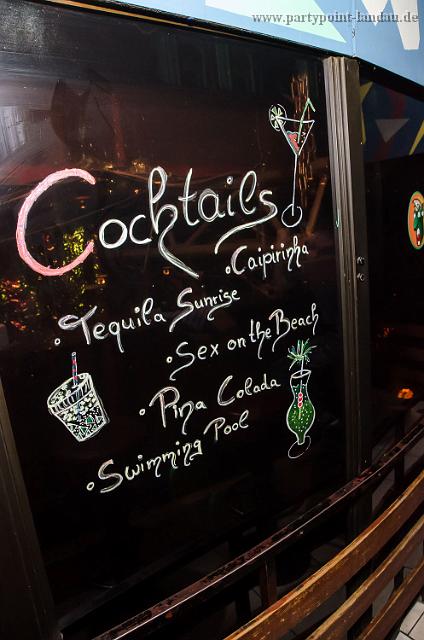 www.partypoint-landau.de
Cocktails
• Caipirinha
• Tequila Sunrise
• Sex on the Beach
• Pina Colada
• Swimming Pool